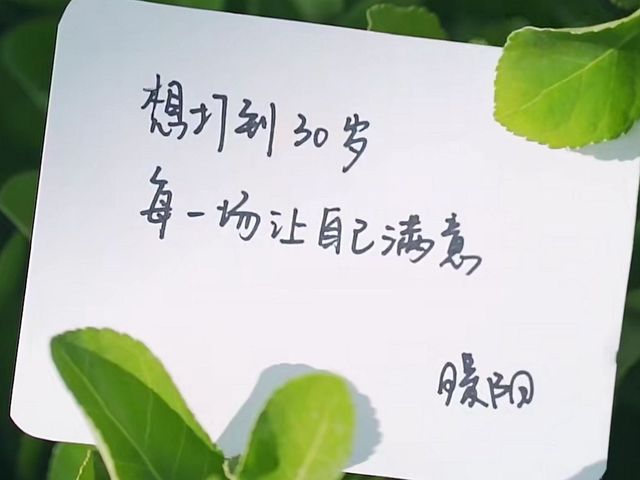 想打到30岁
每一场让自己满意
暖阳